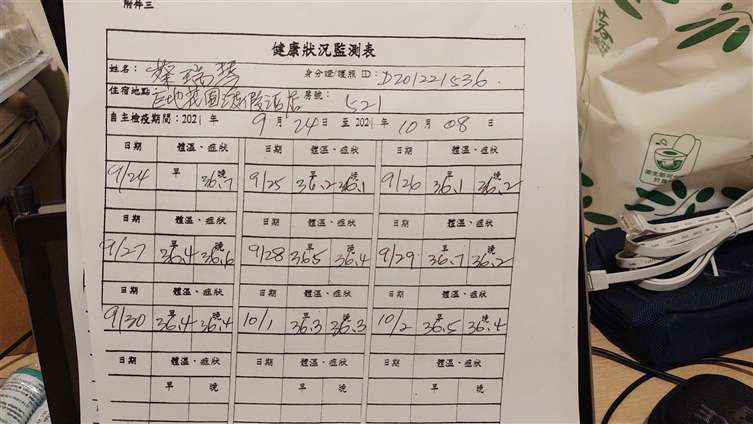 附件三
健康狀況監測表
姓名： 蔡瑞琴 身分證/護照 ID： D201221536
住宿地點 花園渡假酒店 房號： 521
自主檢疫期間：2021 年 9 月 24 日 至 2021 年 10 月 08 日
日期 體溫、症狀 日期 體溫、症狀 日期 體溫、症狀
9/24 早 晚 36.7 9/25 早 36.2 晚 36.1 9/26 早 36.1 晚 36.2
日期 體溫、症狀 日期 體溫、症狀 日期 體溫、症狀
9/27 早 36.4 晚 36.6 9/28 早 36.5 晚 36.4 9/29 早 36.7 晚 36.2
日期 體溫、症狀 日期 體溫、症狀 日期 體溫、症狀
9/30 早 36.4 晚 36.4 10/1 早 36.3 晚 36.3 10/2 早 36.5 晚 36.4
日期 體溫、症狀 日期 體溫、症狀 日期 體溫、症狀
早 晚 早 晚 早 晚